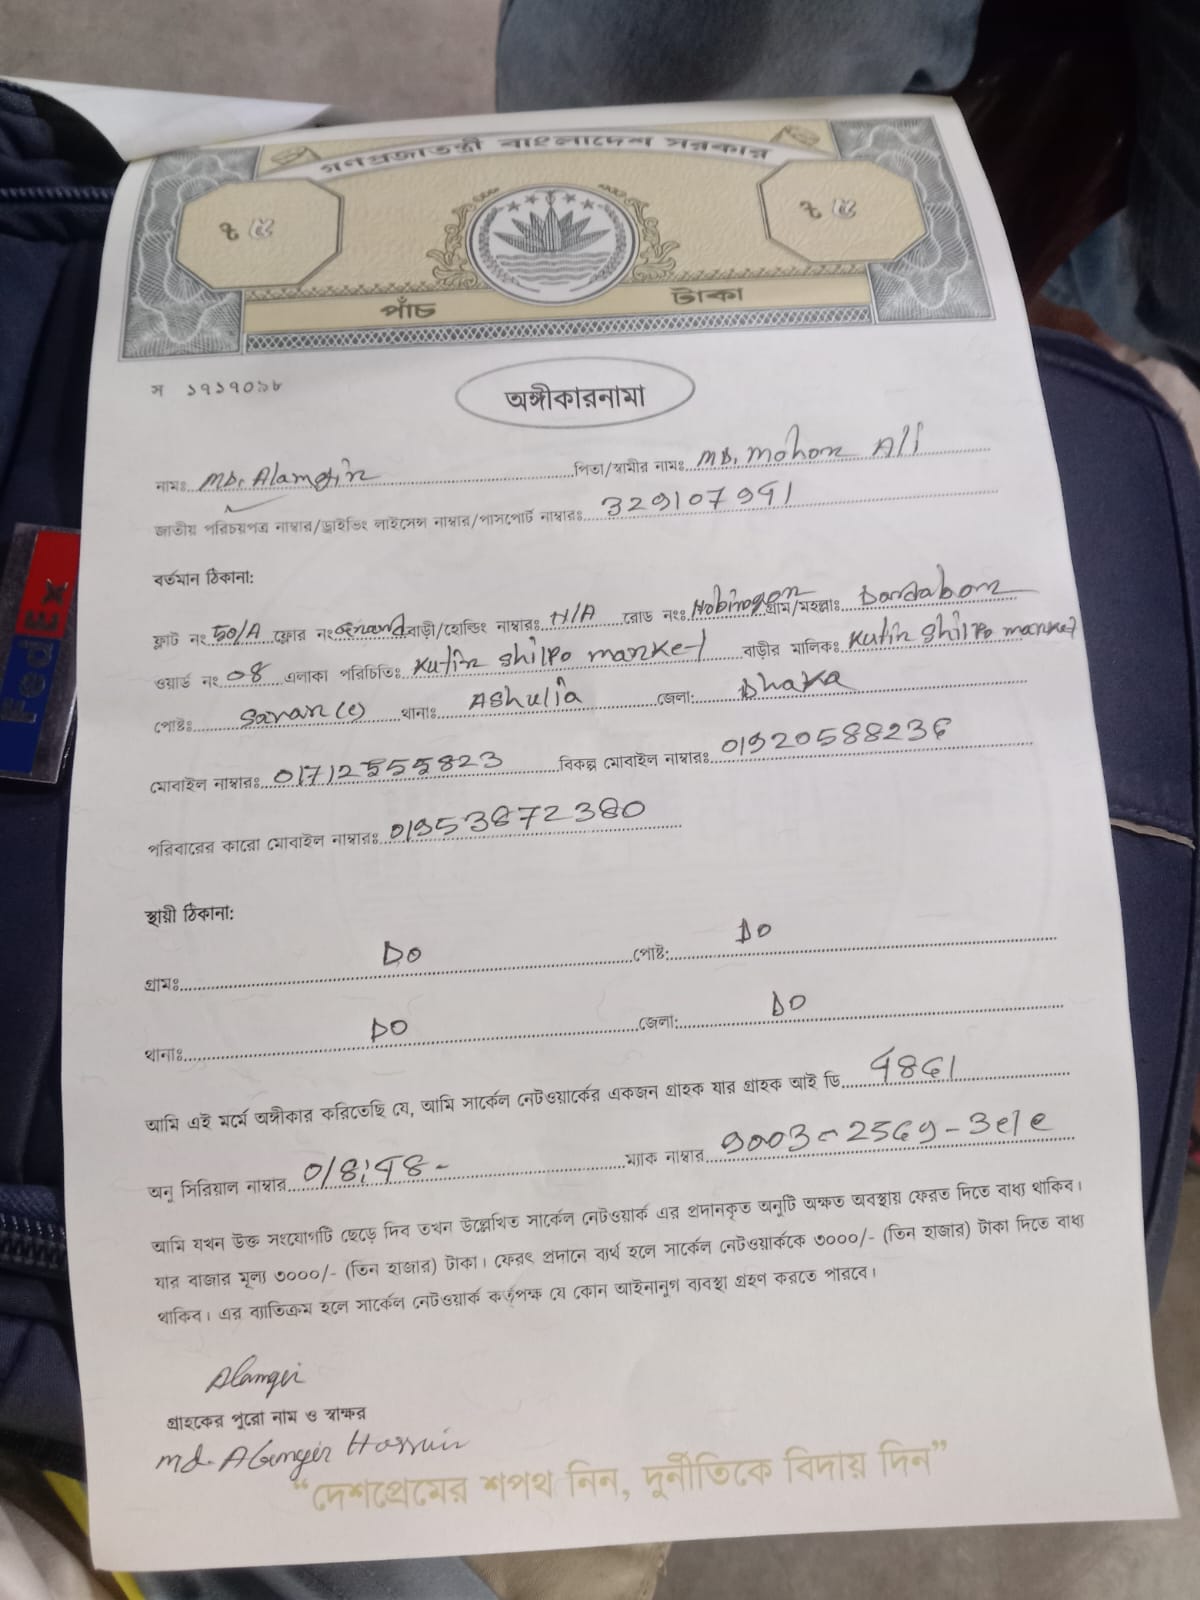 গণপ্রজাতন্ত্রী বাংলাদেশ সরকার
৳ ৫ ৳ ৫
পাঁচ টাকা
স ১৭১৭০১৮
অঙ্গীকারনামা
নামঃ MD. Alamgir পিতা/স্বামীর নামঃ MD. Mohor Ali
জাতীয় পরিচয়পত্র নাম্বার/ড্রাইভিং লাইসেন্স নাম্বার/পাসপোর্ট নাম্বারঃ
বর্তমান ঠিকানা:
ফ্লাট নং 50/A ফ্লোর নং বাড়ী/হোল্ডিং নাম্বারঃ N/A রোড নংঃ গ্রাম/মহল্লাঃ
ওয়ার্ড নং 08 এলাকা পরিচিতিঃ Kutir Shilpo Market বাড়ীর মালিকঃ Kutir Shilpo Market
পোষ্টঃ Savar (c) থানাঃ Ashulia জেলা: Dhaka
মোবাইল নাম্বারঃ 01712555823 বিকল্প মোবাইল নাম্বারঃ
পরিবারের কারো মোবাইল নাম্বারঃ
স্থায়ী ঠিকানা:
গ্রামঃ DO পোষ্ট: DO
থানাঃ DO জেলা: DO
আমি এই মর্মে অঙ্গীকার করিতেছি যে, আমি সার্কেল নেটওয়ার্কের একজন গ্রাহক যার গ্রাহক আই ডি
অনু সিরিয়াল নাম্বার ম্যাক নাম্বার
আমি যখন উক্ত সংযোগটি ছেড়ে দিব তখন উল্লেখিত সার্কেল নেটওয়ার্ক এর প্রদানকৃত অনুটি অক্ষত অবস্থায় ফেরত দিতে বাধ্য থাকিব।
যার বাজার মূল্য ৩০০০/- (তিন হাজার) টাকা। ফেরৎ প্রদানে ব্যর্থ হলে সার্কেল নেটওয়ার্ককে ৩০০০/- (তিন হাজার) টাকা দিতে বাধ্য
থাকিব। এর ব্যাতিক্রম হলে সার্কেল নেটওয়ার্ক কর্তৃপক্ষ যে কোন আইনানুগ ব্যবস্থা গ্রহণ করতে পারবে।
Alamgir
গ্রাহকের পুরো নাম ও স্বাক্ষর
Md. Alamgir Hossain
“দেশপ্রেমের শপথ নিন, দুর্নীতিকে বিদায় দিন”
FedEx